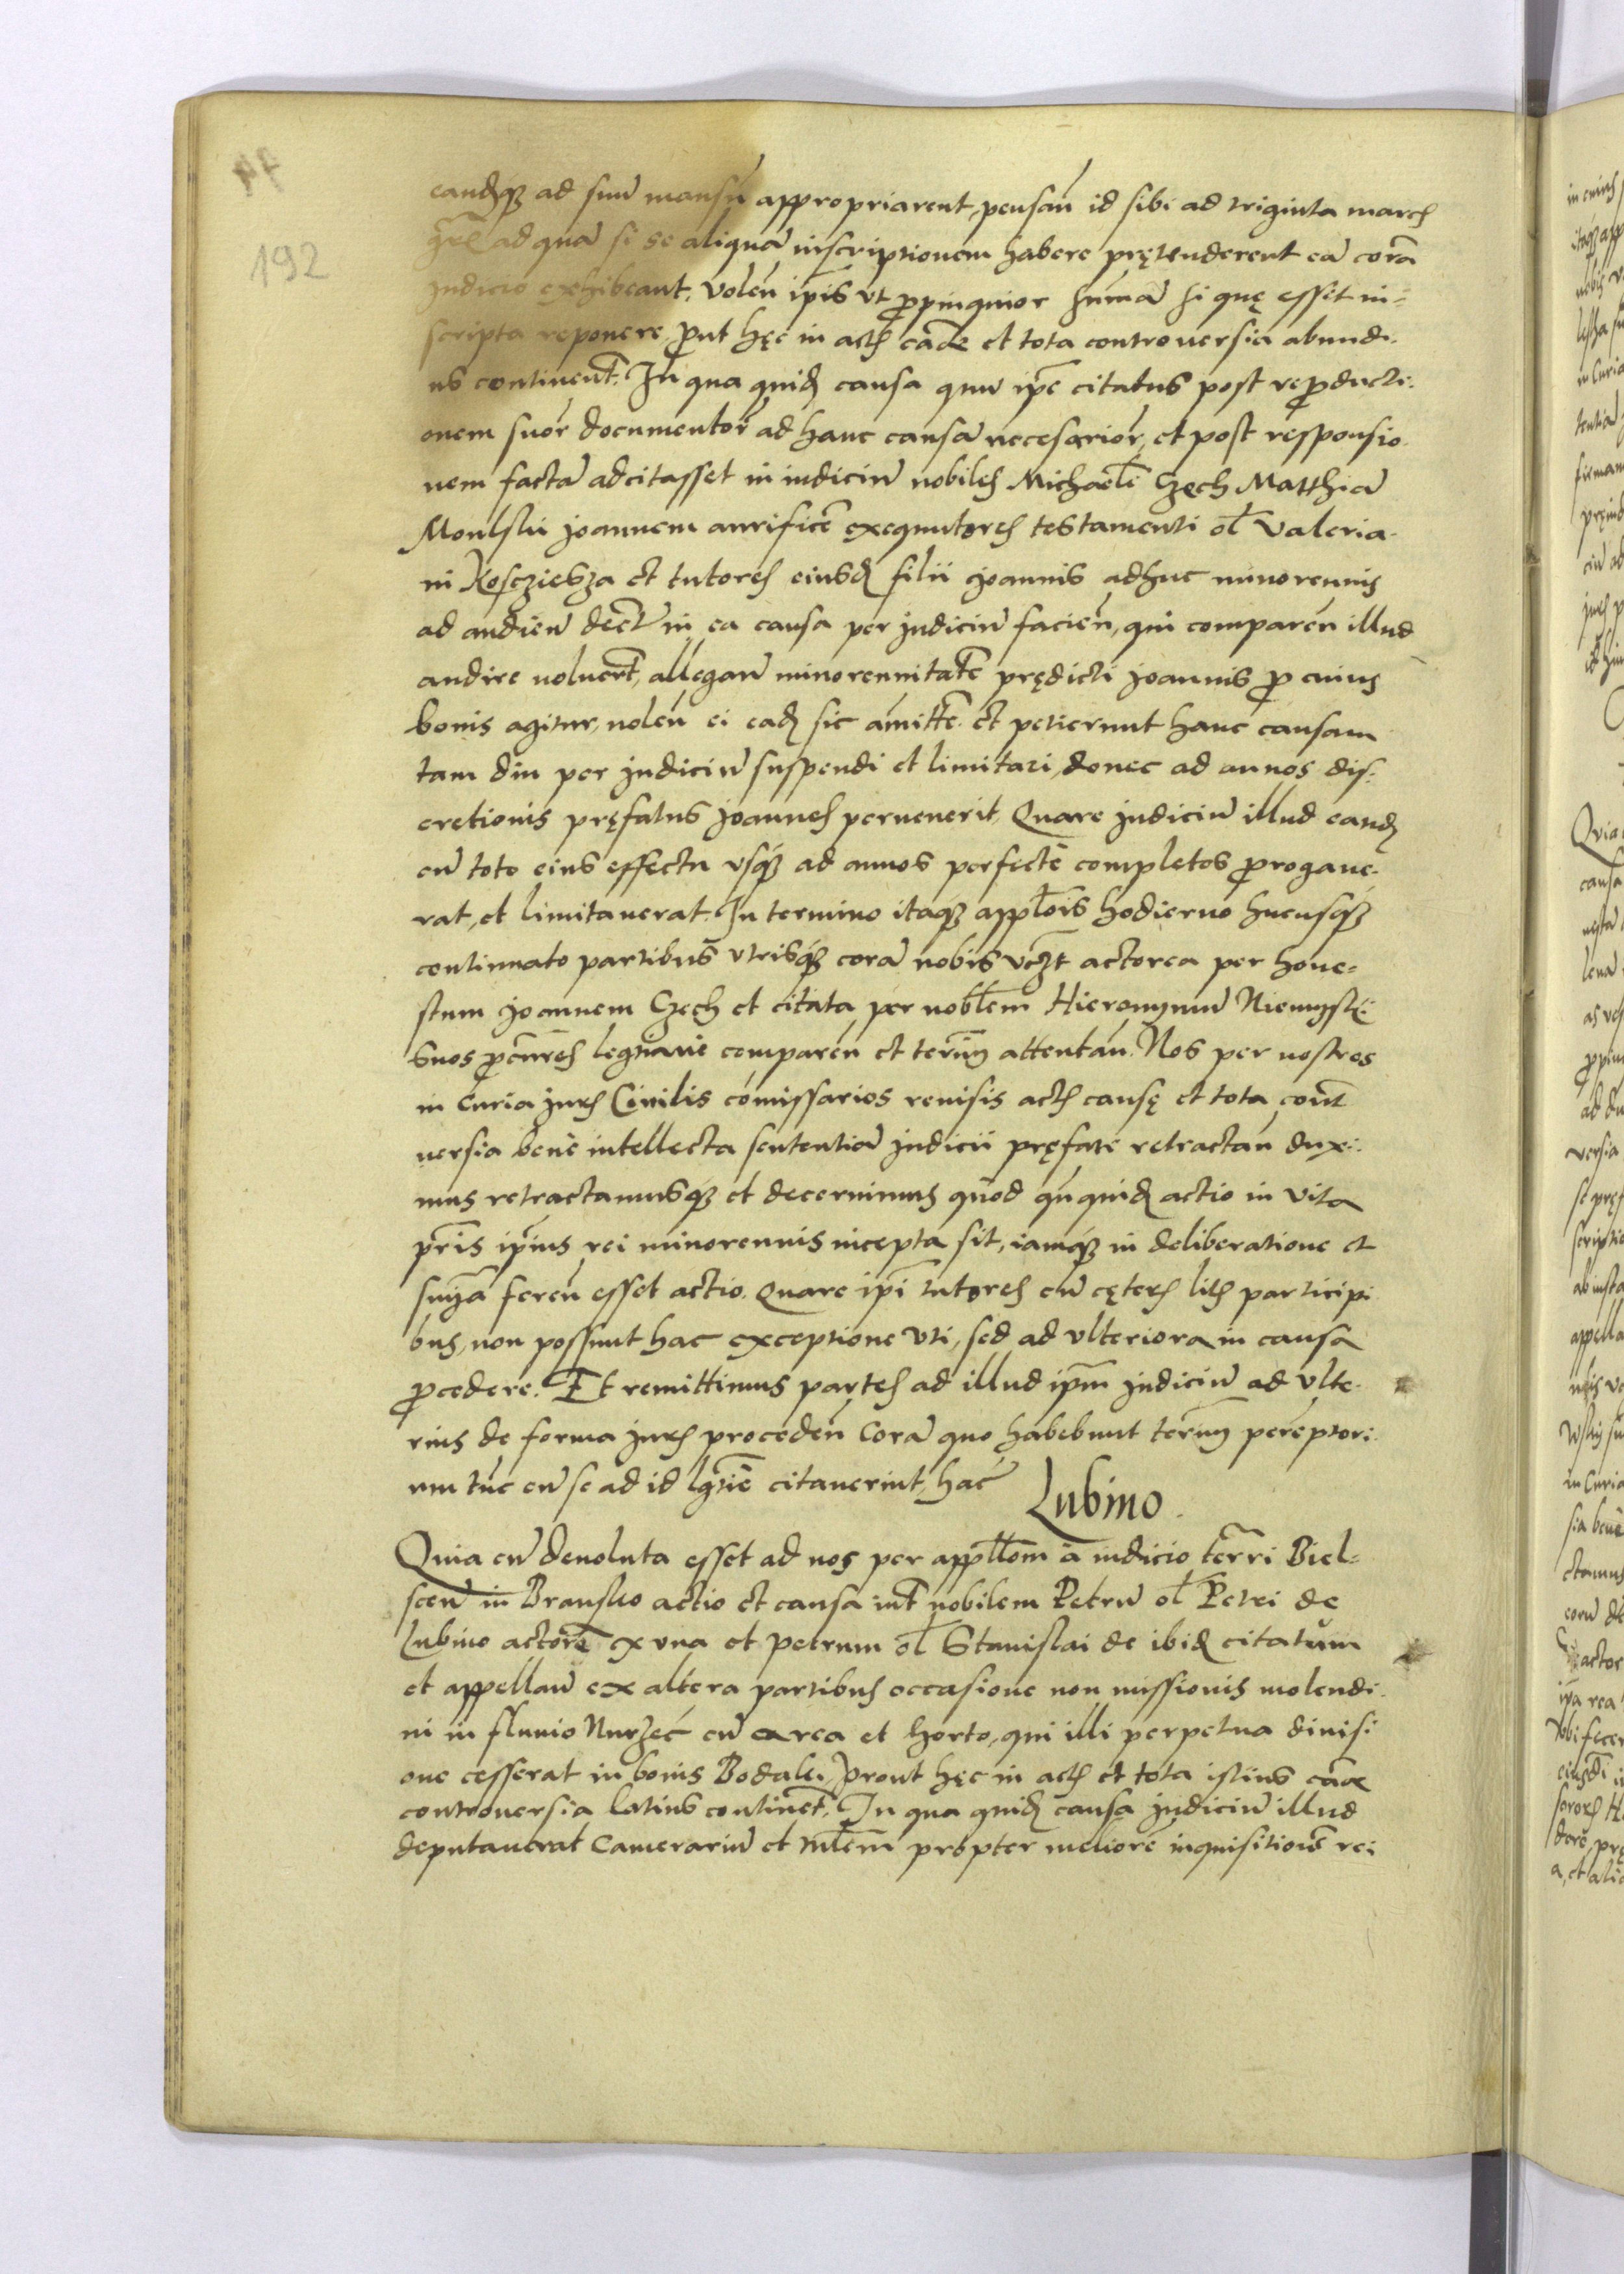 192
eandq3 ad suū mansū appropriarent, pensań id sibi ad triginta march
ad quā si se aliquā inscriptionem habere prętenderent eā corā
Judicio exhibeant, voleń ip̄is vt ꝓpinquior sum̄ā si quę esset in-
scripta reponere, ꝓut hęc in actis cāde et tota controuersia abundi-
us continent̄. In qua quid̄ causa quū ip̄e citatus post reꝓducti-
onem suor̄ documentor̄ ad hanc causā necesarior̄, et post responsio
nem factā adcitasset in iudiciū nobiles Michaelē Czech Matthiā
Monlski Joannem aurificē exequutores testamenti ol̄ Valeria-
ni Koscziesza et tutores eiusd̄ filii Joannis adhuc minorennis
ad audień decr̄ in ea causa per Judiciū facień, qui compareń illud
audire noluer̄t, allegań minorennitatē prędicti Joannis ꝓ cuius
bonis agitur, noleń ei ead̄ sic amitte. et petierunt hanc causam
tam diu per Judiciū suspendi et limitari, donec ad annos dis-
cretionis pręfatus Joannes peruenerit, Quare Judiciū illud eand̄
cū toto eius effectu vsq3 ad annos perfectē completos ꝓrogaue-
rat, et limitauerat. In termino itaq3 appl̄ois hodierno hucusq3
continuato partibus vtrisq3 corā nobis vczt actorea per hone-
stum Joannem Czech et citata per nobl̄em Hieronymū Niemyskj
suos ꝓcur̄es legitime compareń et termin̄ attentań. Nos per nostros
in Curia Juris Ciuilis com̄issarios reuisis actis causę et tota cont̄
uersia bene intellecta sententiā Judicii pręfati retractań duxi-
mus retractamusq3 et decernimus quod qn̄quid̄ actio in vita
pr̄is ip̄ius rei minorennis incepta sit, iamq3 in deliberatione et
sn̄ia fereń esset actio. Quare ip̄i tutores cū cęteris litis participi
bus, non possunt hac exceptione vti, sed ad vlteriora in causa
ꝓcedere. Et remittimus partes ad illud ip̄m Judiciū ad vlte-
rius de forma Juris procedeń Corā quo habebunt termin̄ peremptori-
um tūc cū se ad id lḡtie citauerint, hac̄
Lubino.
Quia cū deuoluta esset ad nos per appl̄lom a iudicio ter̄ri Biel-
sceń in Bransko actio et causa int̄ nobilem Petrū ol̄ Petri de
Lubino actorē ex vna et Petrum ol̄ Stanislai de ibid̄ citatum
et appellań ex altera partibus occasione non missionis molendi-
ni in fluuio Nurzec cū area et horto, qui illi perpetua diuisi
one cesserat in bonis Bodaki, Prout hęc in actis et tota istius cāde
controuersia latius continet̄, In qua quid̄ causa Judiciū illud
deputauerat Camerariū et ml̄em propter meliorē inquisitionē rei